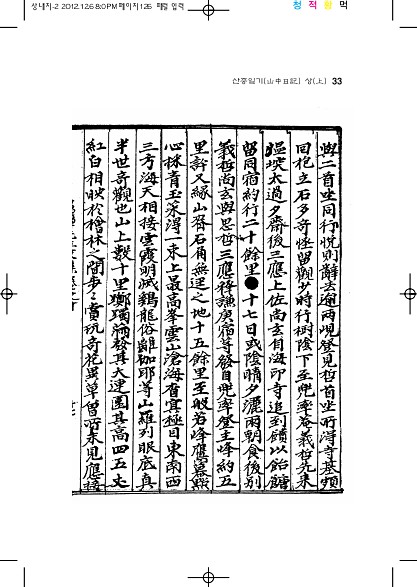 상내지-2 2012.12.6 8:0 PM 페이지126 매컬 입력
청 적 황 먹
산중일기(山中日記) 상(上) 33
與二首坐同行悅則辭去逾兩峴登見哲首坐所浔寺基頗
回抱立石多奇怪留觀少時行樹陰下至兜率庵義哲先来
温埃太過夕齋後三應上佐尚玄自海印寺追到饋以飴餹
留同宿約行二十餘里●十七日或陰晴夕灑雨朝食後別
義哲尚玄與思哲三應釋謙庚宿等發自兜率登主峰約五
里許又緣山脊石角無逕之地十五餘里至般若峰應慕熙
心採青玉菜浔一束上最高峯雲山滄海杳冥極目東南西
三方海天相接雲霞明滅鷄龍俗離伽耶等山羅列眼底真
半世奇觀也山上數十里躑躅滿發其大連園其高四五丈
紅白相映扵檜林之間步々賞玩奇花異草曾所未見應釋